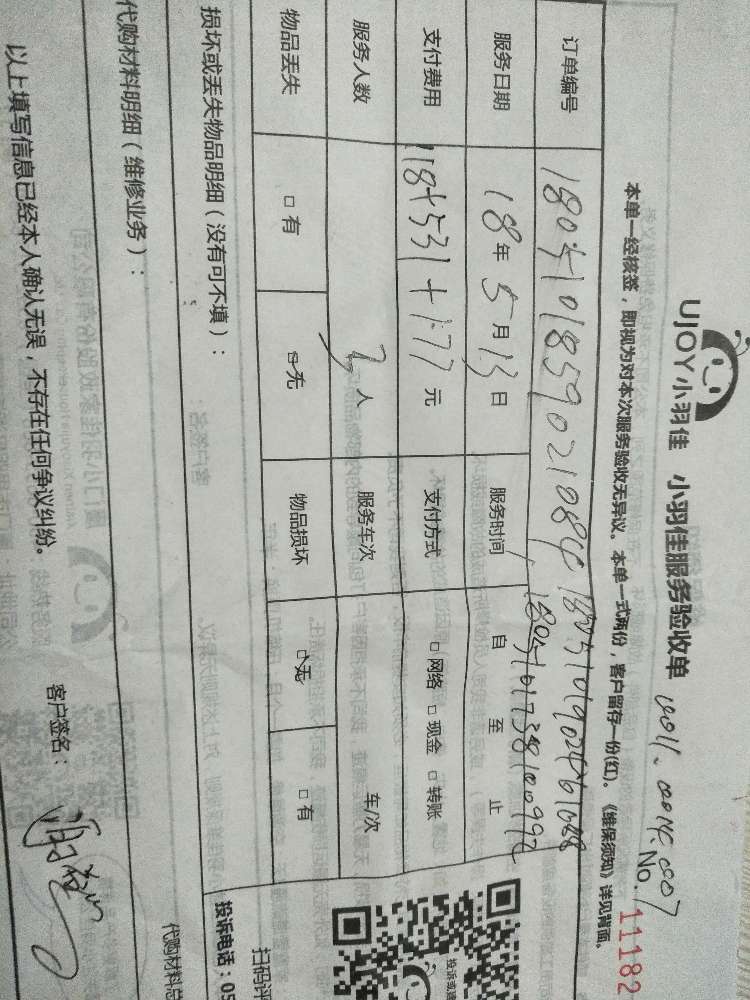 UJOY小羽佳 小羽佳服务验收单
No. 11182
本单一经核签，即视为对本次服务验收无异议。本单一式两份，客户留存一份(红)。《维保须知》详见背面。
订单编号
服务日期 18年5月13日 服务时间 自 至 止
支付费用 118+531+177元 支付方式 □网络 □现金 □转账
服务人数 2人 服务车次 车/次
物品丢失 □有 □无 物品损坏 □无 □有
损坏或丢失物品明细（没有可不填）：
代购材料明细（维修业务）：
代购材料总
以上填写信息已经本人确认无误，不存在任何争议纠纷。
客户签名：
扫码评
投诉电话：05